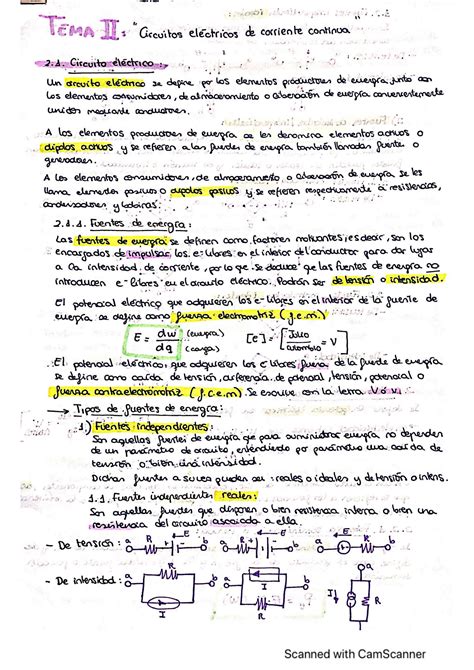 TEMA II: "Circuitos eléctricos de corriente continua
2.1. Circuito eléctrico:
Un circuito eléctrico se define por los elementos productores de energía, junto con
los elementos consumidores, de almacenamiento o absorción de energía convenientemente
unidos mediante conductores.
A los elementos productores de energía se les denomina elementos activos o
dipolos activos y se refieren a las fuentes de energía también llamadas fuente o
generadores.
A los elementos consumidores, de almacenamiento o absorción de energía, se les
llama elementos pasivos o dipolos pasivos y se refieren respectivamente a resistencias,
condensadores y bobinas.
2.1.1. Fuentes de energía:
Las fuentes de energía se definen como factores motivantes, es decir, son los
encargados de impulsar los e⁻ libres en el interior del conductor para dar lugar
a la intensidad de corriente, por lo que se deduce que las fuentes de energía no
introducen e⁻ libres en el circuito eléctrico. Podrán ser de tensión o intensidad.
El potencial eléctrico que adquieren los e⁻ libres en el interior de la fuente de
energía se define como fuerza electromotriz (f.e.m)
E = dw (energía) / dq (carga) [E] = [Julio / culombio = V]
El potencial eléctrico que adquieren los e⁻ libres fuera de la fuente de energía
se define como caída de tensión, diferencia de potencial, tensión, potencial o
fuerza contraelectromotriz (f.c.e.m). Se escribe con la letra V o v.
→ Tipos de fuentes de energía:
1) Fuentes independientes:
Son aquellas fuentes de energía que para suministrar energía no dependen
de un parámetro de circuito, entendiendo por parámetro una caída de
tensión o bien una intensidad.
Dichas fuentes a su vez pueden ser: reales o ideales y de tensión o intens.
1.1. Fuentes independientes reales:
Son aquellas fuentes que disponen o bien resistencia interna o bien una
resistencia del circuito asociada a ella.
- De tensión: a R E b a R E b a E R b
- De intensidad: a R I b a I R b a I R b
Scanned with CamScanner